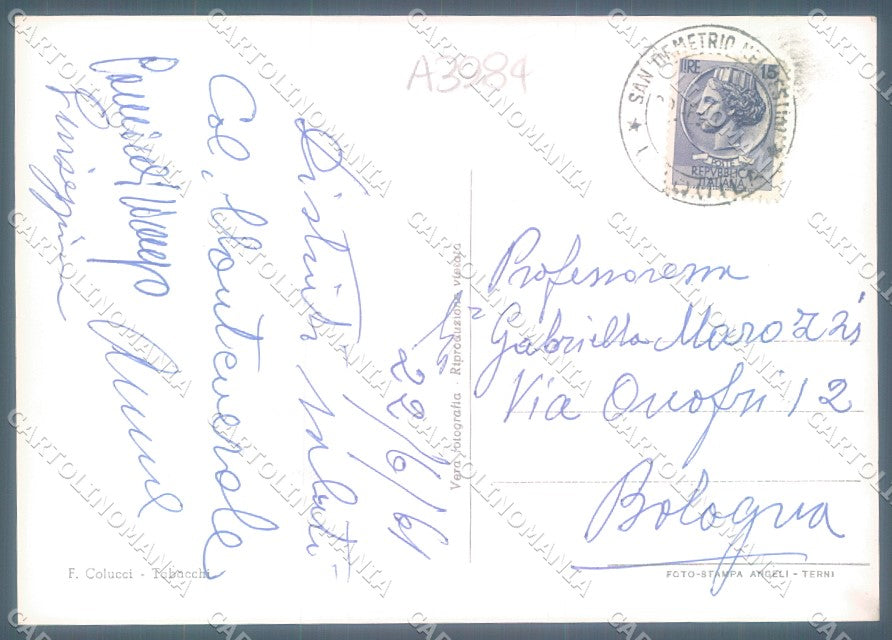 A3984
SAN DEMETRIO NE' VESTINI
LIRE 15
POSTE
REPVBBLICA
ITALIANA
22/6/61
Distinti saluti
Col. Monteverde
Giuseppina
Vera fotografia - Riproduzione vietata
Professoressa
Gabriella Marozzi
Via Onofri 12
Bologna
F. Colucci - Tabacchi
FOTO-STAMPA ANGELI - TERNI
CARTOLINOMANIA